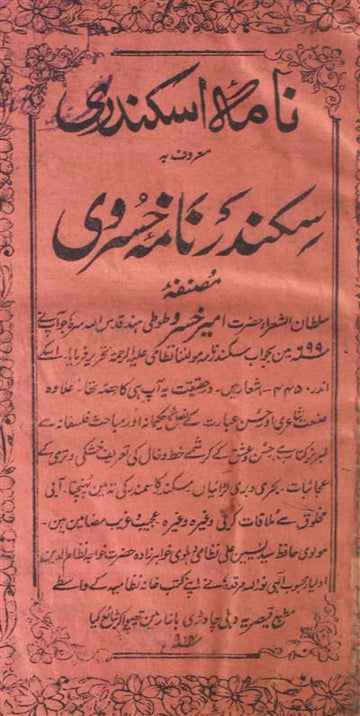 نامۂ اسکندری
معروف بہ
سکندر نامہ خسروی
مصنفۂ
سلطان الشعراء حضرت امیر خسرو طوطی ہند قدس اللہ سرہ کو جو آپ نے
۶۹۹ مین بجواب سکندر نامہ مولٰنا نظامی علیہ الرحمۃ تحریر فرمایا۔ اسکے
اندر ۴۴۵۰ اشعار ہیں۔ درحقیقت یہ آپ ہی کا حصہ تھا۔ علاوہ
صنعت شاعری اور حسن عبارت کے نصائح حکیمانہ اور مباحث فلسفانہ سے
لبریز کتاب ہے حسن و عشق کے کرشمے خط و خال کی تعریف خشکی و تری کے
عجائبات۔ بحری و بری لڑائیاں۔ سکندر کا سمندر کی تہ میں پہنچنا۔ آبی
مخلوق سے ملاقات کرنی وغیرہ وغیرہ۔ عجیب و غریب مضامین ہین۔
مولوی حافظ سید یٰسین علی نظامی دہلوی خواہر زادہ حضرت خواجہ نظام الدین
اولیاء محبوب الٰہی نور اللہ مرقدہ نے اپنے کتب خانہ نظامیہ کے واسطے
مطبع قیصریہ دہلی چاوڑی بازار مین چھپوا کر شائع کیا